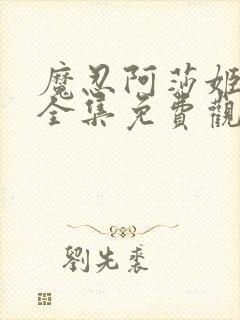 魔忍阿莎姬
全集免費觀
劉先裘